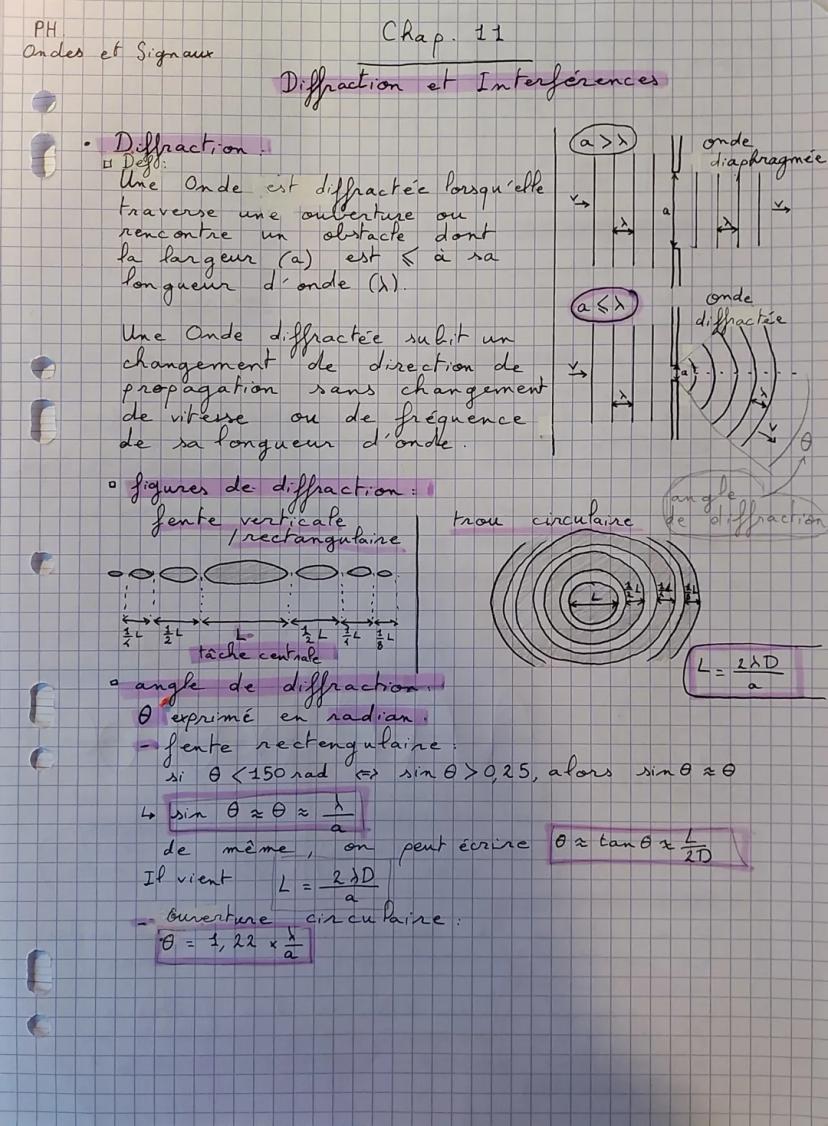 PH.
Ondes et Signaux
Chap. 11
Diffraction et Interférences
• Diffraction :
Def :
Une Onde est diffractée lorsqu'elle
traverse une ouverture ou
rencontre un obstacle dont
la largeur (a) est ⩽ à sa
longueur d'onde (λ).
Une Onde diffractée subit un
changement de direction de
propagation sans changement
de vitesse ou de fréquence
de sa longueur d'onde.
a > λ
onde
diaphragmée
v
λ
a
λ
v
a ⩽ λ
onde
diffractée
v
λ
a
λ
v
θ
angle
de diffraction
figures de diffraction :
fente verticale
/rectangulaire
1/4 L 1/2 L L 1/2 L 1/4 L 1/8 L
tâche centrale
trou circulaire
L 1/2 L 1/4 L 1/8 L
L = 2λD/a
angle de diffraction :
θ exprimé en radian.
- fente rectengulaire :
si θ < 150 rad ⇔ sin θ > 0,25, alors sin θ ≈ θ
↳ sin θ ≈ θ ≈ λ/a
de même, on peut écrire θ ≈ tan θ ≈ L/2D
Il vient L = 2λD/a
- Ouverture circulaire :
θ = 1,22 × λ/a